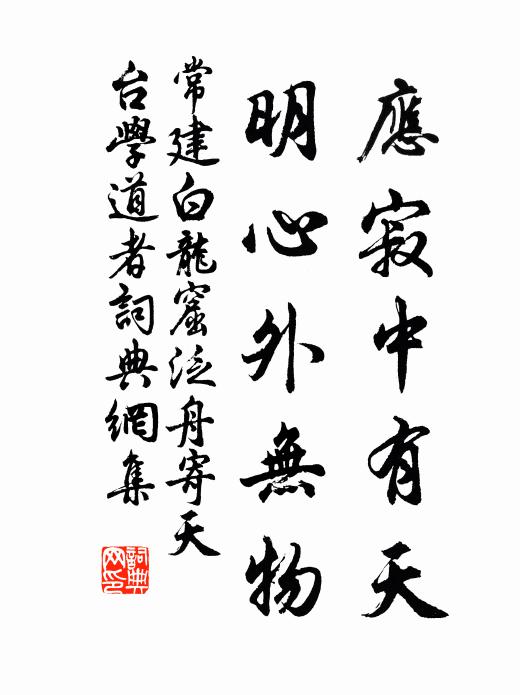 應寂中有天
明心外無物
常建白龍窟泛舟寄天
台學道者詞典網集
詞典
网印